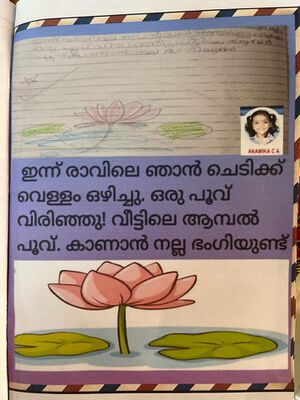 ANAMIKA C A
ഇന്ന് രാവിലെ ഞാൻ ചെടിക്ക്
വെള്ളം ഒഴിച്ചു. ഒരു പൂവ്
വിരിഞ്ഞു! വീട്ടിലെ ആമ്പൽ
പൂവ്. കാണാൻ നല്ല ഭംഗിയുണ്ട്